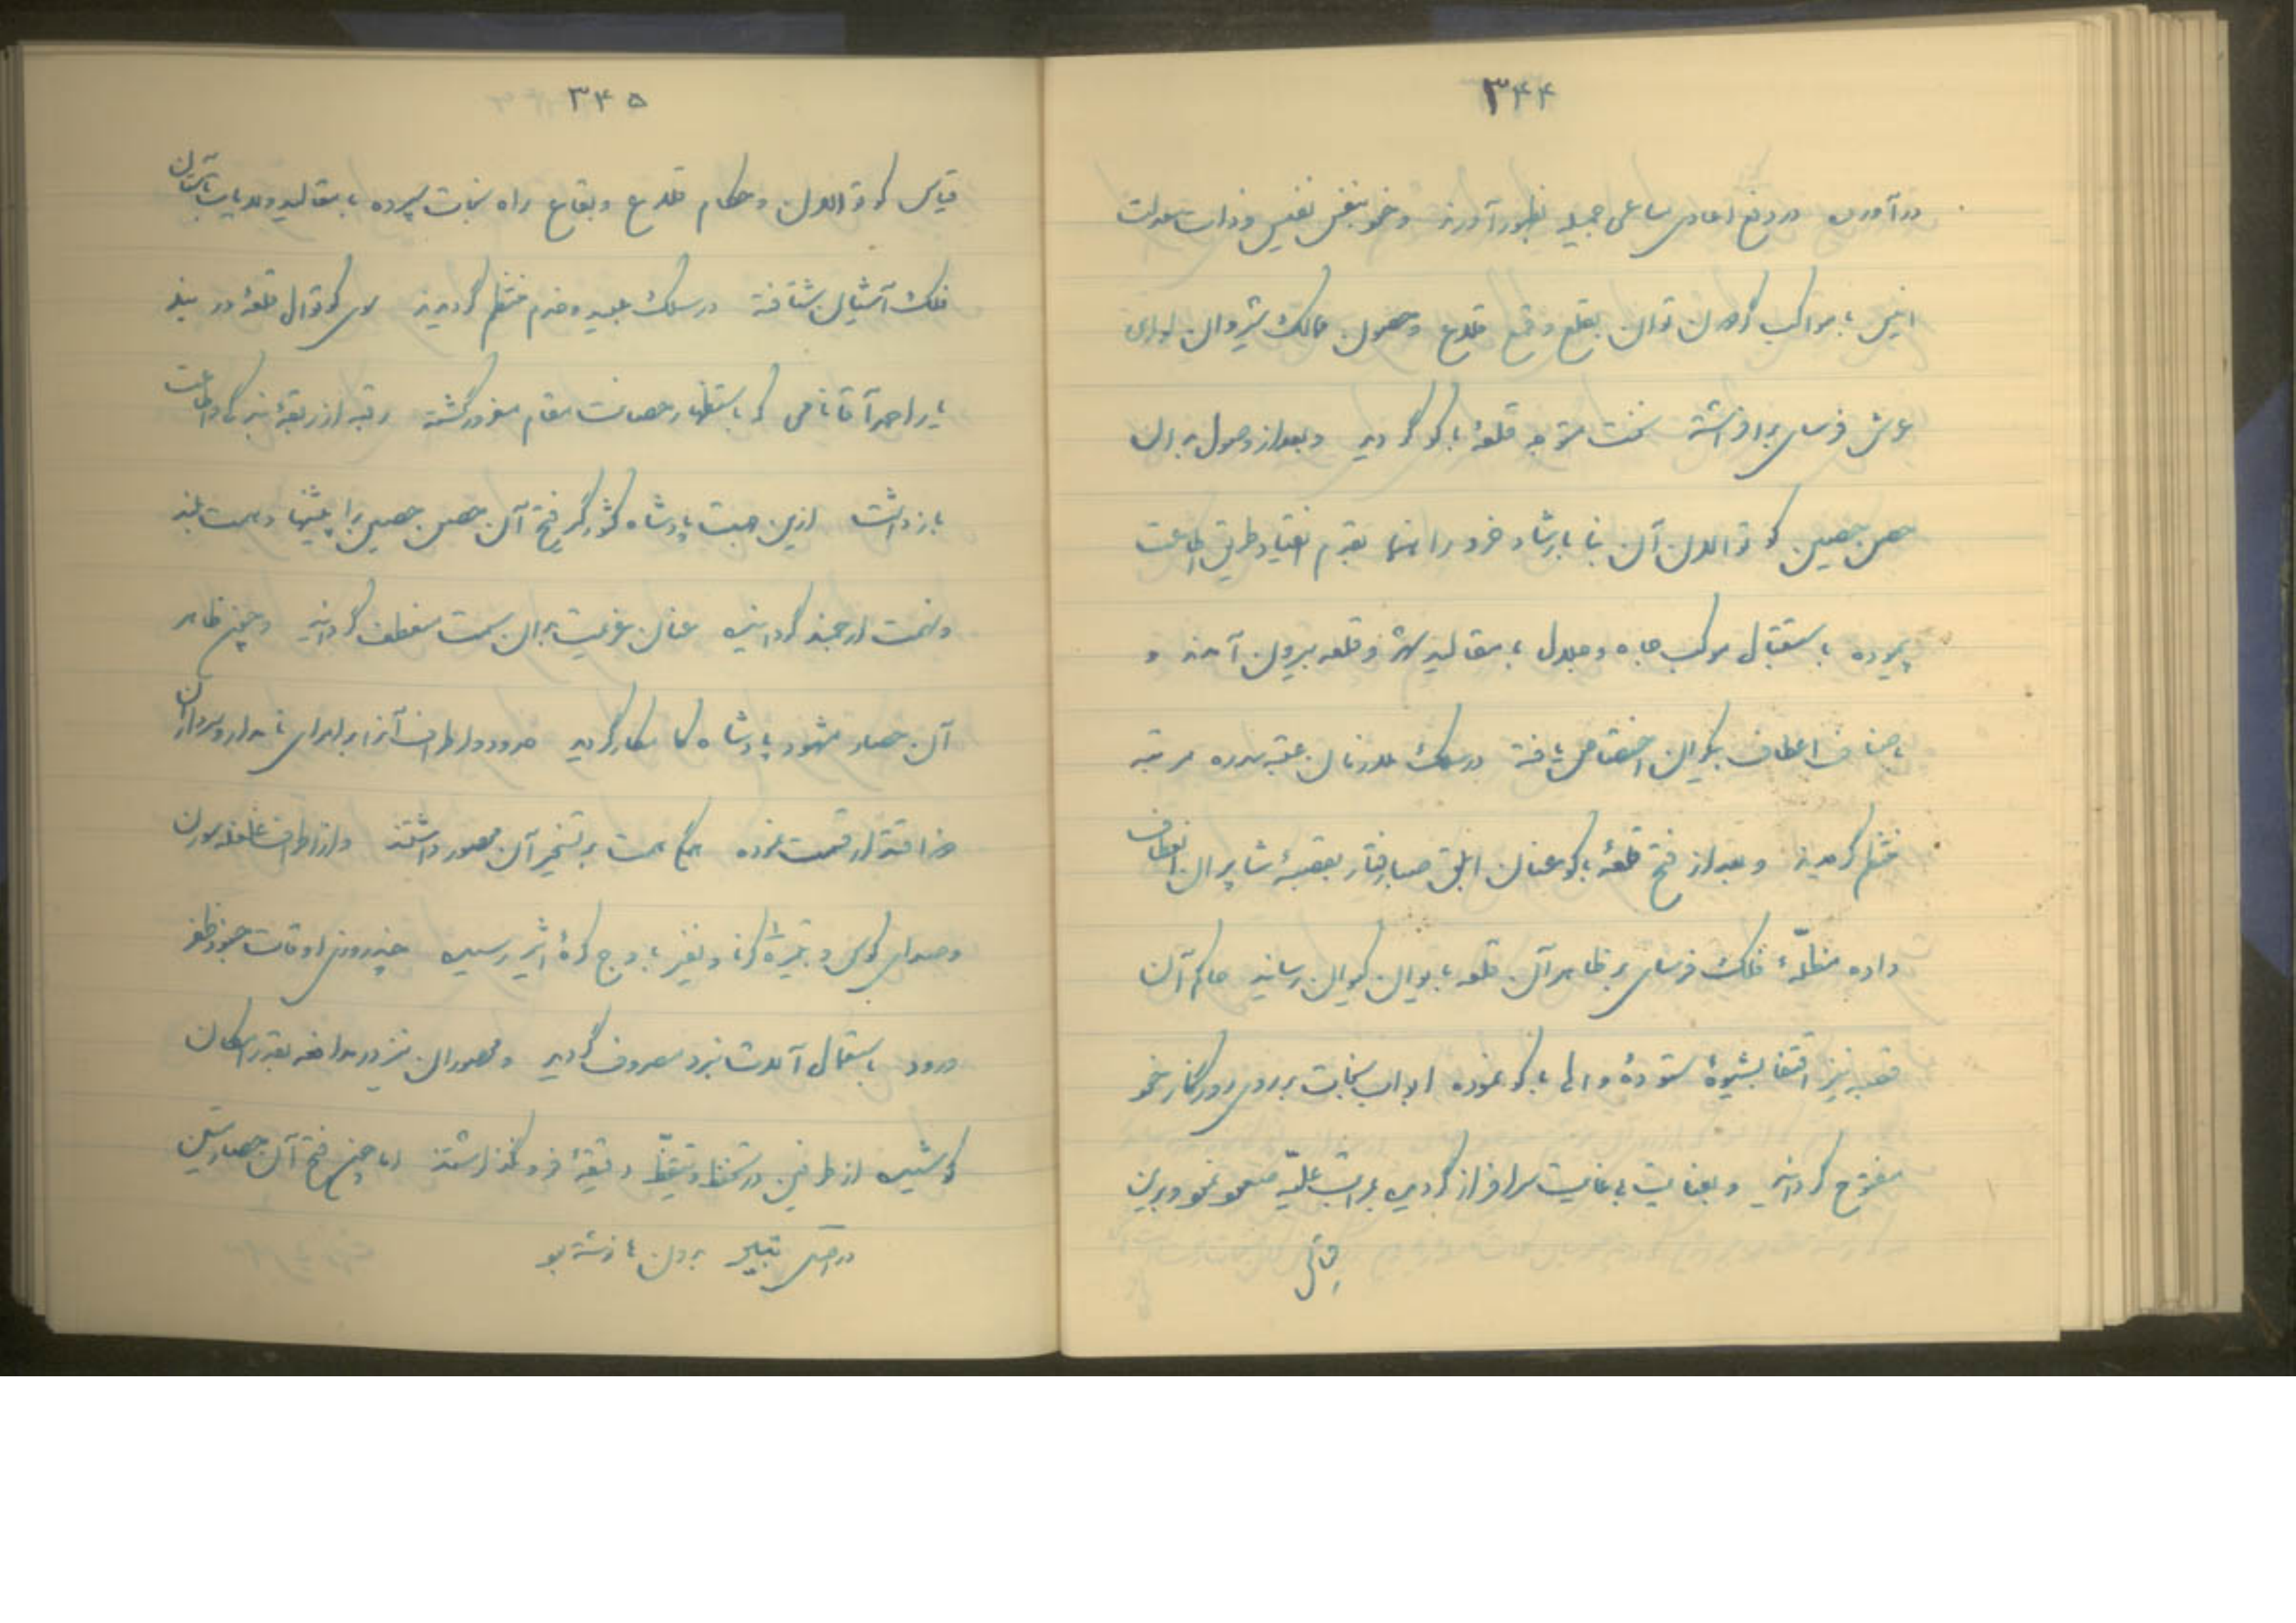 ۳۴۴
در آورده در دفع اعادی مساعی جمیله بظهور آورند و خود بنفس نفیس و ذات عدالت
انیس با مواکب گردون توان بقلع و قمع قلاع و حصون ممالک شیروان لوای
عرش فرسای برافراشته نخست متوجه قلعهٔ باکو گردید و بعد از وصول بدان
حصن حصین کوتوالان آن بنا بارشاد خرد راهنما بقدم انقیاد طریق اطاعت
پیموده باستقبال موکب جاه و جلال با مقالید شهر و قلعه بیرون آمدند و
باصناف اعطاف بیکران اختصاص یافته در سلک ملازمان عتبه سدره مرتبه
منتظم گردیدند و بعد از فتح قلعهٔ باکو عنان ابلق صبا رفتار بقصبهٔ شابران انعطاف
داده مظلّهٔ فلک فرسای بر ظاهر آن قلعه بایوان کیوان رسانید حاکم آن
قصبه نیز اقتفا بشیوهٔ ستودهٔ والی باکو نموده ابواب نجات بر روی روزگار خود
مفتوح گردانید و بعنایت بی‌غایت سرافراز گردیده بمراتب علیّه صعود نمود و برین
قیاس
۳۴۵
قیاس کوتوالان و حکام قلاع و بقاع راه نجات سپرده با مقالید ولایات بآستان
فلک آشیان شتافته در سلک عبید و خدم منتظم گردیدند سوی کوتوال قلعهٔ دربند
یار احمد آقا نامی که باستظهار حصانت مقام مغرور گشته رقبه از ربقهٔ بندگی و اطاعت
باز داشت ازین جهت پادشاه کشورگیر فتح آن حصن حصین را پیشنهاد همت بلند
و نهمت ارجمند گردانیده عنان عزیمت بدان سمت منعطف گردانید و چون ظاهر
آن حصار مشهود پادشاه کامکار گردید حدود و اطراف آنرا بر امرای نامدار و سرداران
ذو اقتدار قسمت نموده همگی همت بر تسخیر آن مقصور داشتند و از اطراف غلغله سورن
و صدای کوس و نعرهٔ کرنا و نفیر باوج کرهٔ اثیر رسیده چند روزی اوقات جنود ظفر
ورود باستعمال آلات نبرد مصروف گردید و محصوران نیز در مدافعه بقدر امکان
کوشیده از طرفین در تحفّظ و تیقّظ دقیقهٔ فرو نگذاشتند اما چون فتح آن حصار متین
بدان باز بسته بود